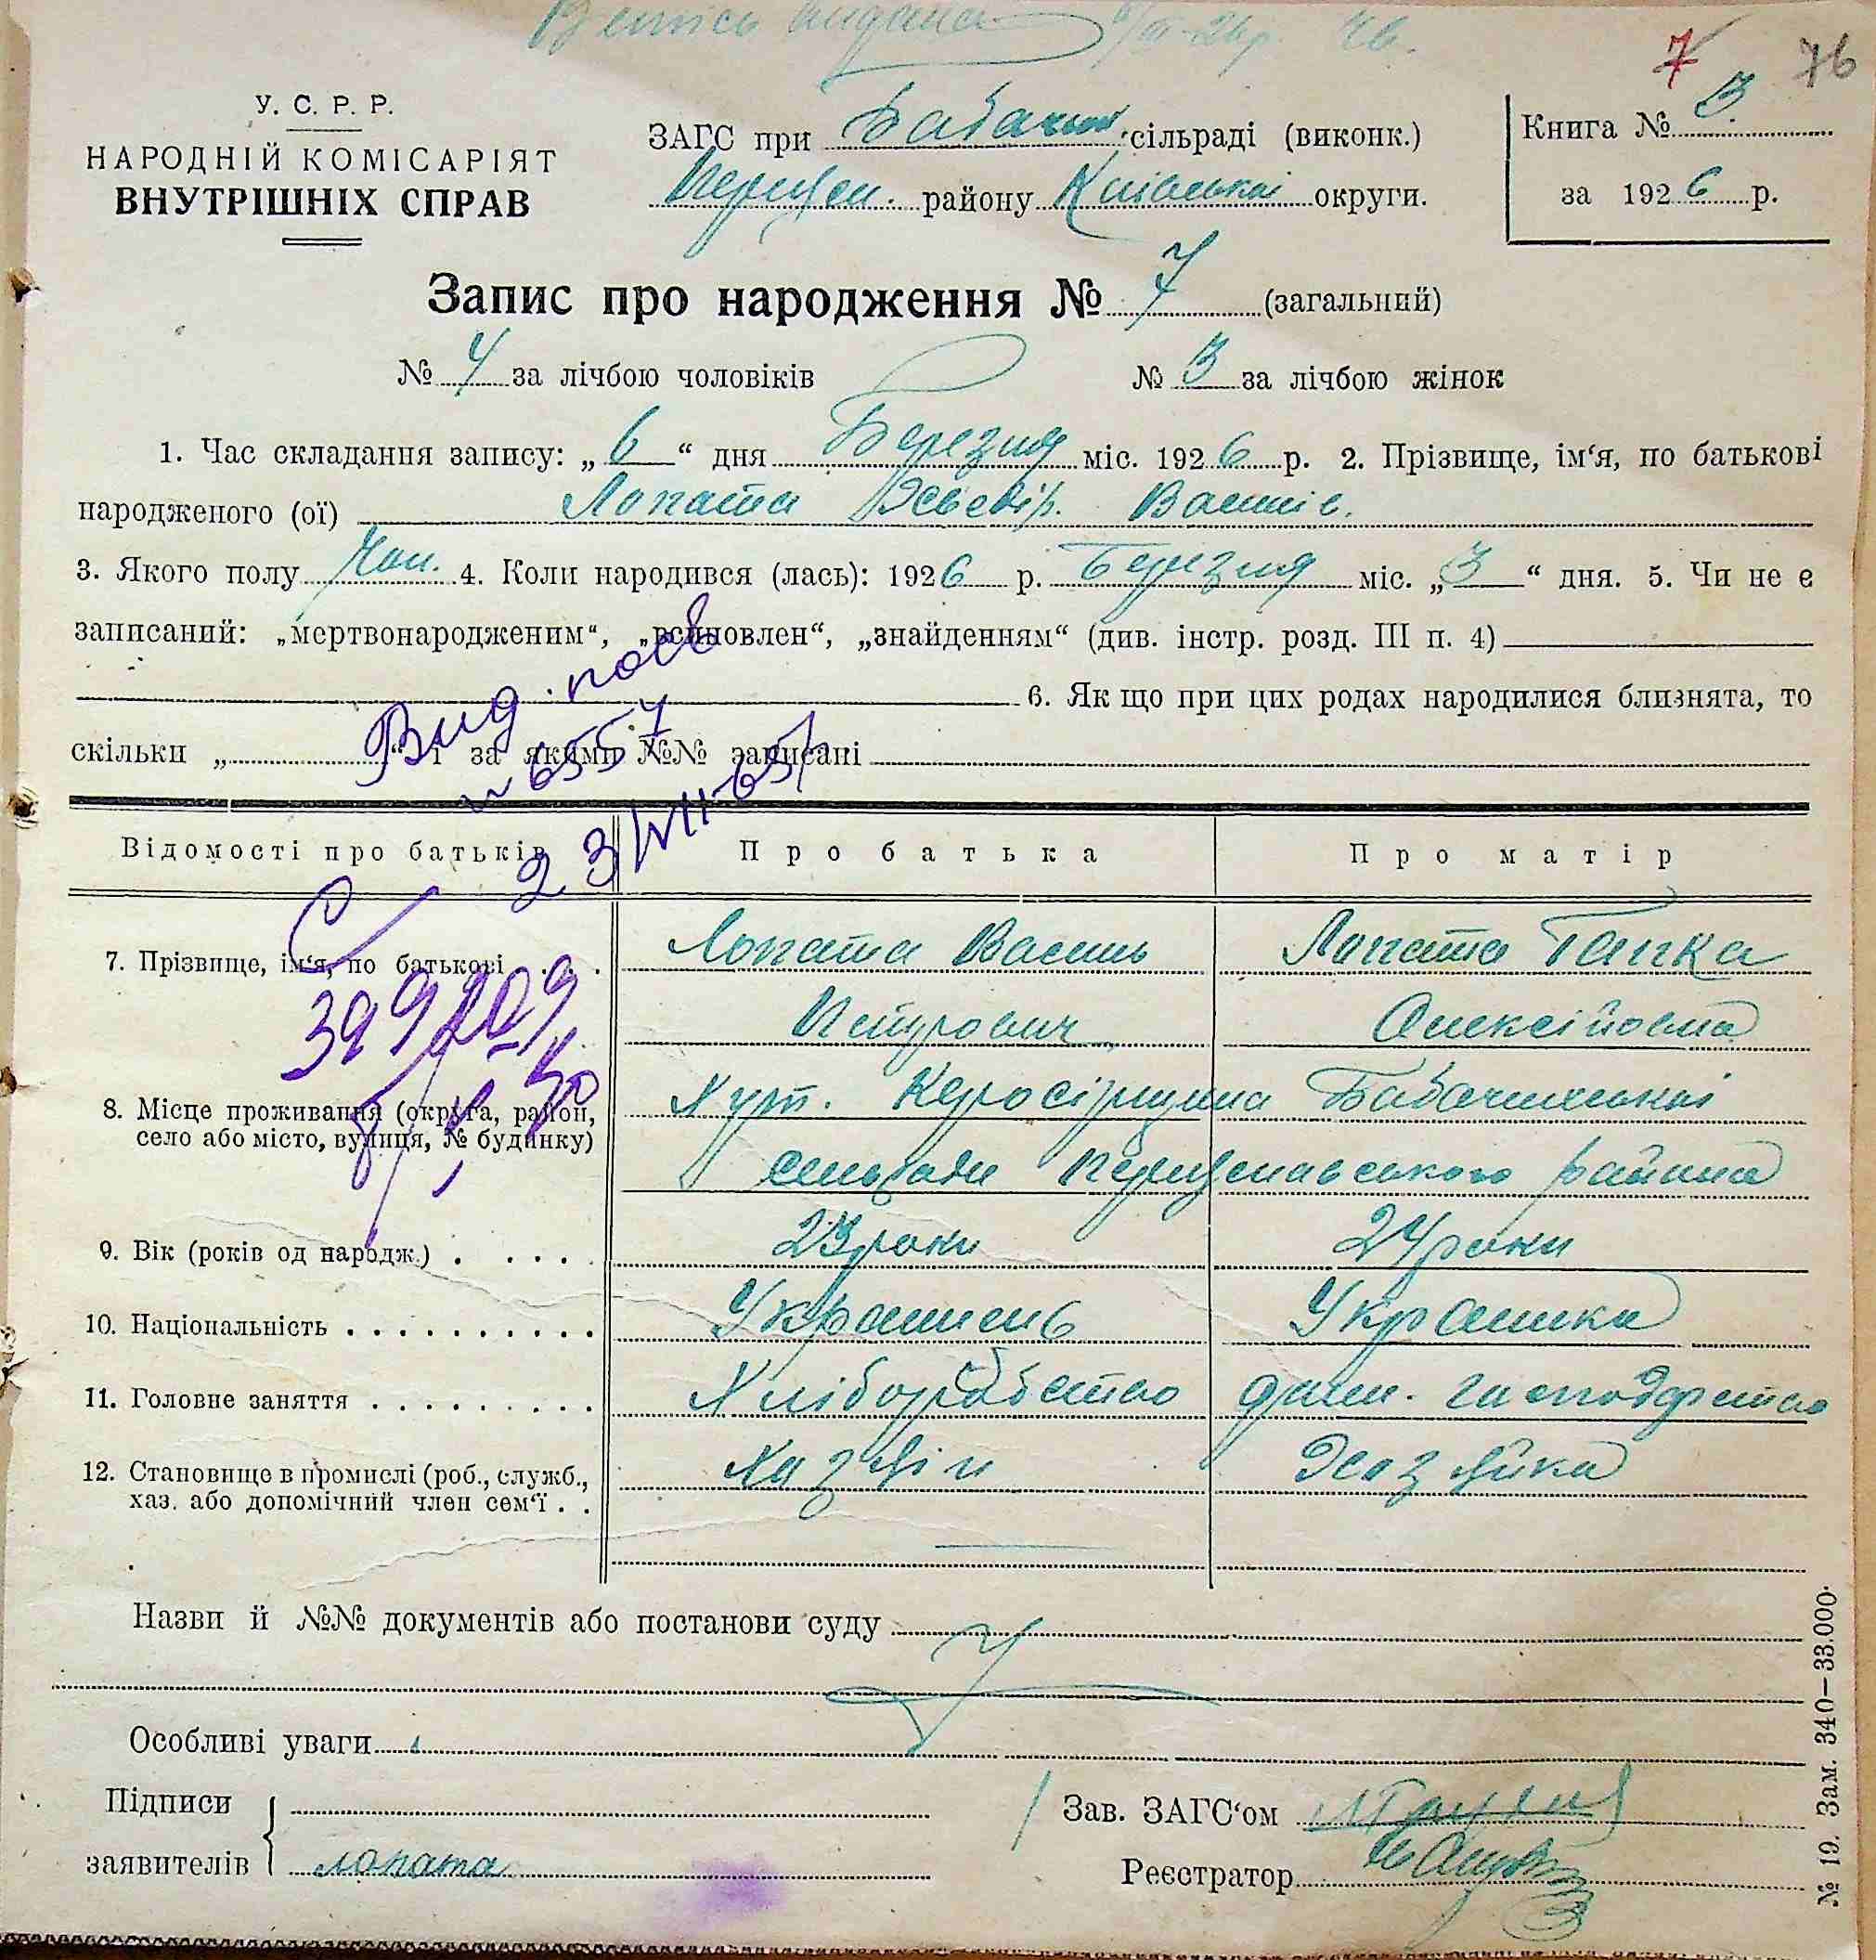 Випись видана
7 76
У. С. Р. Р.
НАРОДНІЙ КОМІСАРІЯТ
ВНУТРІШНІХ СПРАВ
ЗАГС при Бабачин сільраді (виконк.)
району Київської округи.
Книга № 3
за 1926 р.
Запис про народження № 7 (загальний)
№ 4 за лічбою чоловіків № 3 за лічбою жінок
1. Час складання запису: „6“ дня Березня міс. 1926 р. 2. Прізвище, ім‘я, по батькові
народженого (ої) Лопата Василів.
3. Якого полу Чол. 4. Коли народився (лась): 1926 р. Березня міс. „3“ дня. 5. Чи не є
записаний: „мертвонародженим“, „всиновлен“, „знайденням“ (див. інстр. розд. III п. 4)
6. Як що при цих родах народилися близнята, то
скільки „ “ і за якими №№ записані
Вид. посв
6557
23/VII-65
Відомості про батьків Про батька Про матір
7. Прізвище, ім‘я, по батькові . . . Лопата Василь Лопата Ганка
Петрович Олексійовна
399209
8. Місце проживання (округа, район, село або місто, вулиця, № будинку) Хут. Бабачиської
сельради района
9. Вік (років од народж.) . . . . . 23 роки 24 роки
10. Національність . . . . . . . . . . Українець Українка
11. Головне заняття . . . . . . . . . . Хліборобство дом. господарство
12. Становище в промислі (роб., служб., хаз. або допомічний член сем‘ї . . Хазяін Хазяйка
Назви й №№ документів або постанови суду
Особливі уваги
Підписи
заявителів лопата
Зав. ЗАГС‘ом
Реєстратор
№ 19. Зам. 340—33.000.